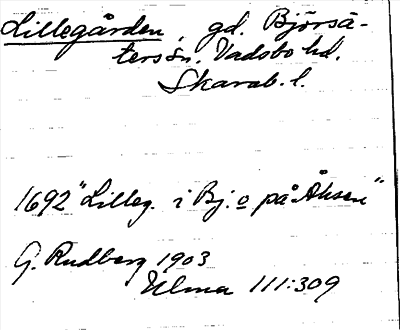 Lillegården, gd. Björsä-
ters sn. Vadsbo hd.
Skarab. l.
1692 "Lilleg. i Bj. o på Åhsen"
G. Rudberg 1903
Ulma 111:309